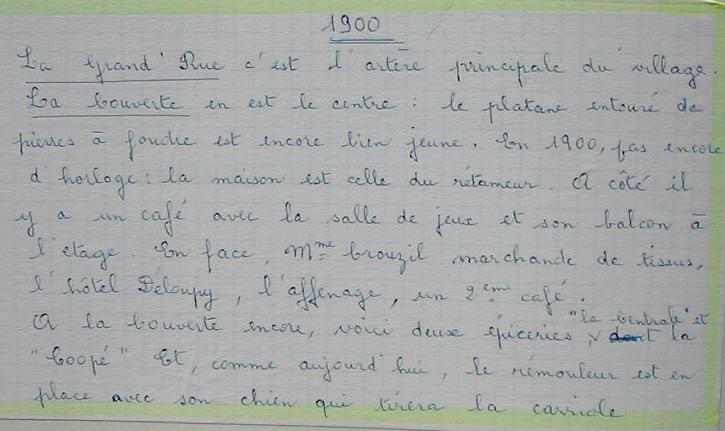 1900
La Grand'Rue c'est l'artère principale du village.
La Couverte en est le centre : le platane entouré de
pierres à foudre est encore bien jeune. En 1900, pas encore
d'horloge : la maison est celle du rétameur. A côté il
y a un café avec la salle de jeux et son balcon à
l'étage. En face, Mme Crouzil marchande de tissus,
l'hôtel Déloupy, l'affenage, un 2ème café.
A la Couverte encore, voici deux épiceries "la Centrale" et la
"Coopé" Et, comme aujourd'hui, le rémouleur est en
place avec son chien qui tirera la carriole